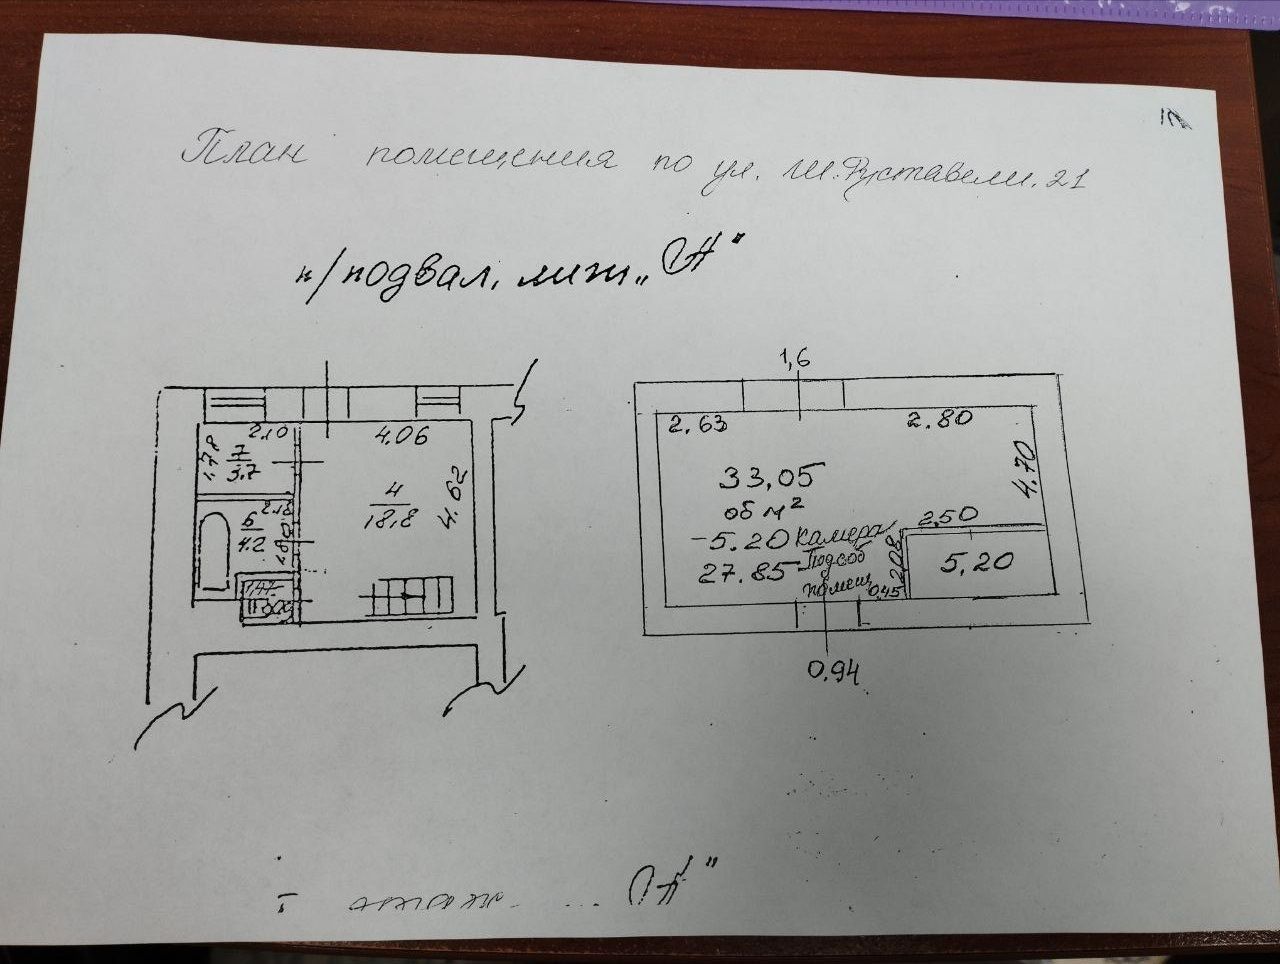 План помещения по ул. Ш. Руставели. 21
п/подвал, лит „А"
2.10
4.06
1.78
7
3.7
4
18,8
4.62
6
4.2
2.18
1,6
2.63
2.80
33,05
об м²
4.70
-5.20 камера
27.85 Подсоб
помещ
2,50
2.08
5,20
0,45
0.94
I этаж ... „А"